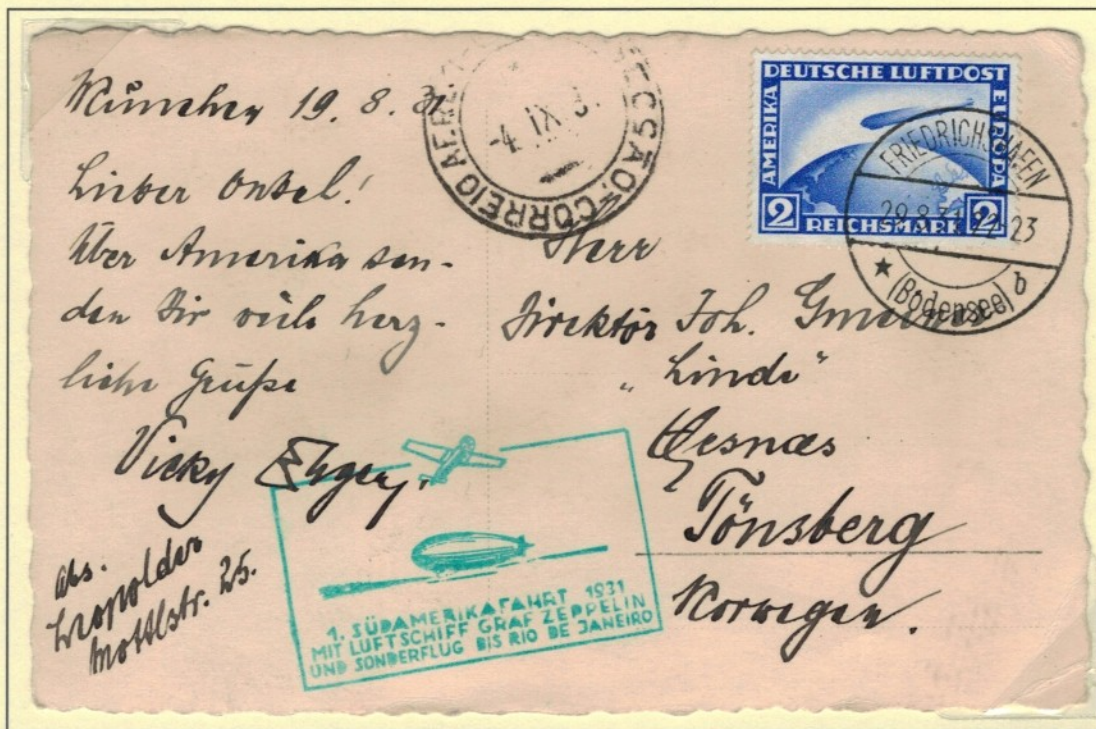 München 19. 8. 31
Lieber Onkel!
Über Amerika sen-
den Dir viele herz-
liche Grüße
Vicky
Abs.
Leopolder
Mottlstr. 25.
CORREIO AEREO
-4. IX 3
DEUTSCHE LUFTPOST
AMERIKA
EUROPA
2 REICHSMARK 2
FRIEDRICHSHAFEN
29.8.31.22-23
(Bodensee) b
Herr
Direktör Joh.
"Linde"
Tönsberg
Norwegen.
1. SÜDAMERIKAFAHRT 1931
MIT LUFTSCHIFF GRAF ZEPPELIN
UND SONDERFLUG BIS RIO DE JANEIRO